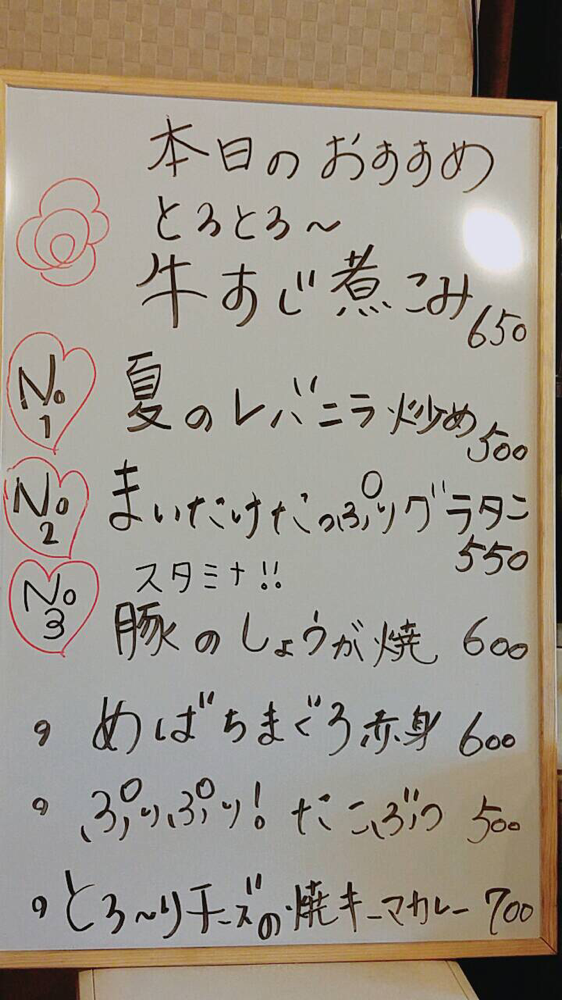 本日のおすすめ
とろとろ～
牛すじ煮こみ 650
No 1 夏のレバニラ炒め 500
No 2 まいたけたっぷりグラタン 550
スタミナ!!
No 3 豚のしょうが焼 600
めばちまぐろ赤身 600
ぷりぷり! たこぶつ 500
とろ～りチーズの焼キーマカレー 700